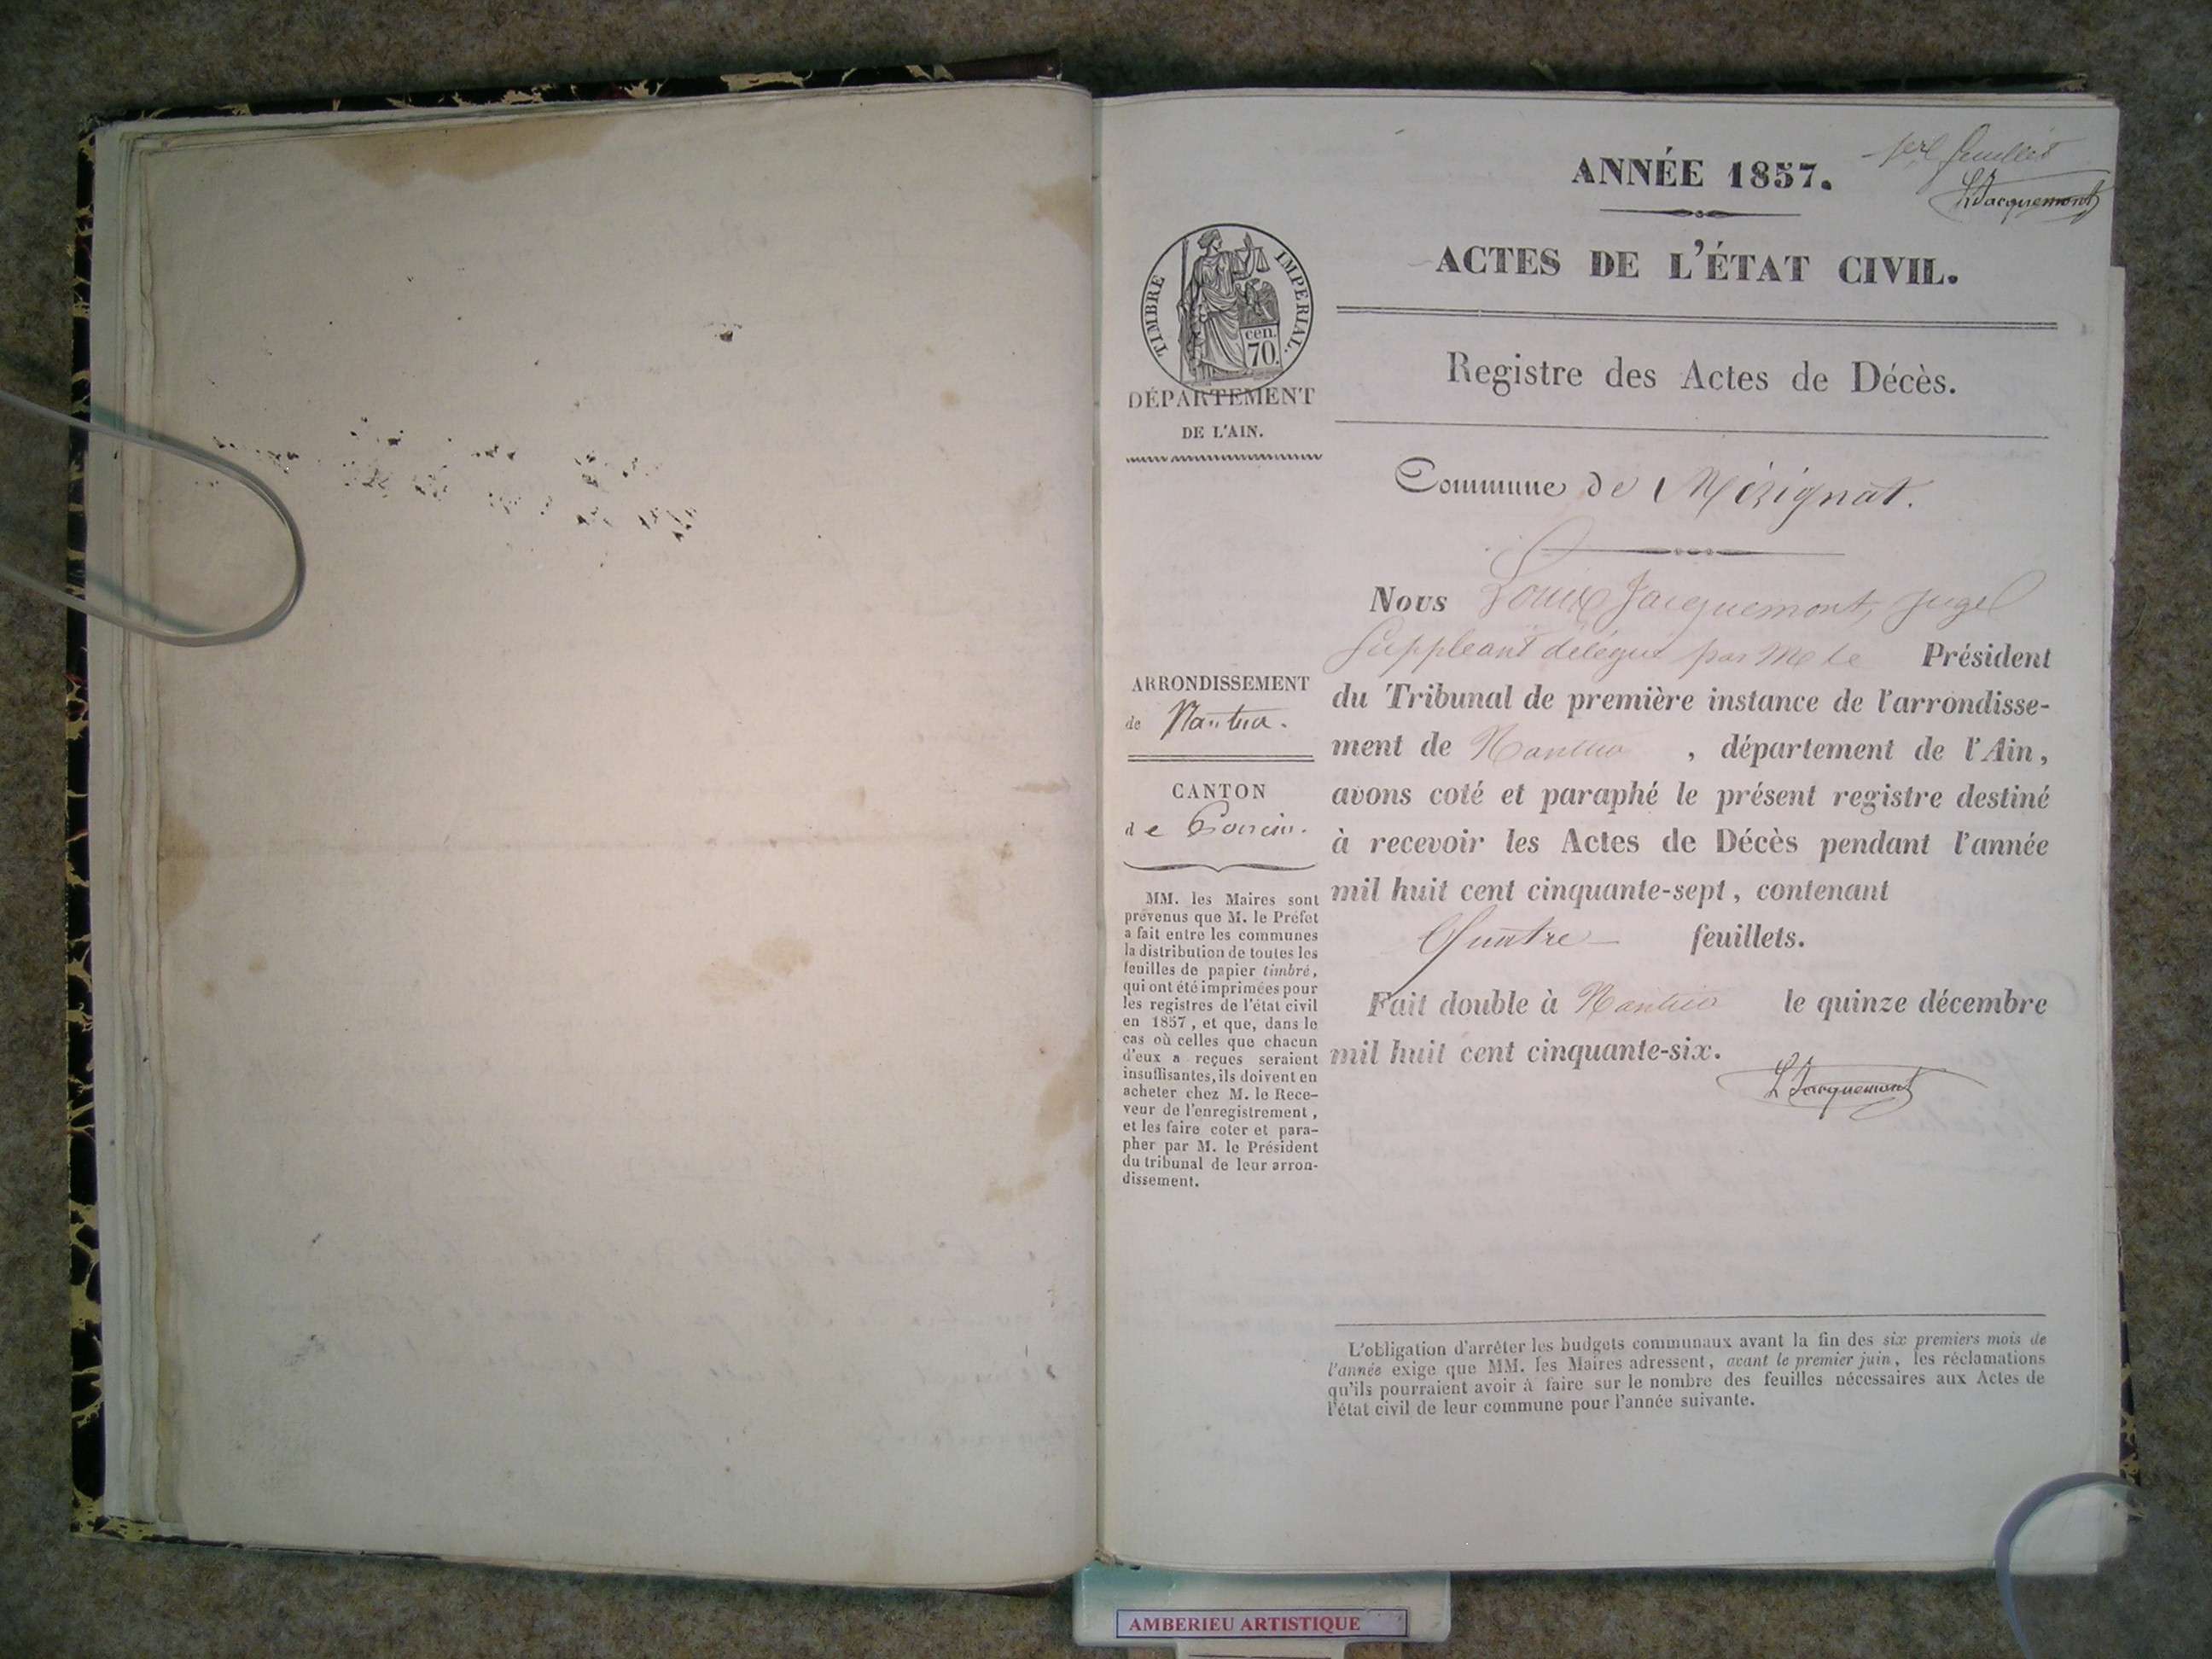 1er feuillet
LJacquemont
ANNÉE 1857.
ACTES DE L'ÉTAT CIVIL.
TIMBRE IMPERIAL.
cen.
70.
DÉPARTEMENT
DE L'AIN.
Registre des Actes de Décès.
Commune de Mérignat.
ARRONDISSEMENT
de Nantua.
CANTON
de Poncin.
MM. les Maires sont
prévenus que M. le Préfet
a fait entre les communes
la distribution de toutes les
feuilles de papier timbré,
qui ont été imprimées pour
les registres de l'état civil
en 1857, et que, dans le
cas où celles que chacun
d'eux a reçues seraient
insuffisantes, ils doivent en
acheter chez M. le Rece-
veur de l'enregistrement,
et les faire coter et para-
pher par M. le Président
du tribunal de leur arron-
dissement.
Nous Louis Jacquemont, juge
Suppléant délégué par Mr le Président
du Tribunal de première instance de l'arrondisse-
ment de Nantua, département de l'Ain,
avons coté et paraphé le présent registre destiné
à recevoir les Actes de Décès pendant l'année
mil huit cent cinquante-sept, contenant
Quatre feuillets.
Fait double à Nantua le quinze décembre
mil huit cent cinquante-six.
LJacquemont
L'obligation d'arrêter les budgets communaux avant la fin des six premiers mois de
l'année exige que MM. les Maires adressent, avant le premier juin, les réclamations
qu'ils pourraient avoir à faire sur le nombre des feuilles nécessaires aux Actes de
l'état civil de leur commune pour l'année suivante.
AMBERIEU ARTISTIQUE